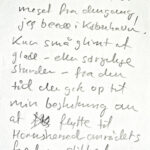 meget fra dengang,
jeg boede i København.
Kun små glimt af
glade - eller sørgelige
stunder - fra den
tid der gik op til
min beslutning om
at flytte til
Hornsherred området